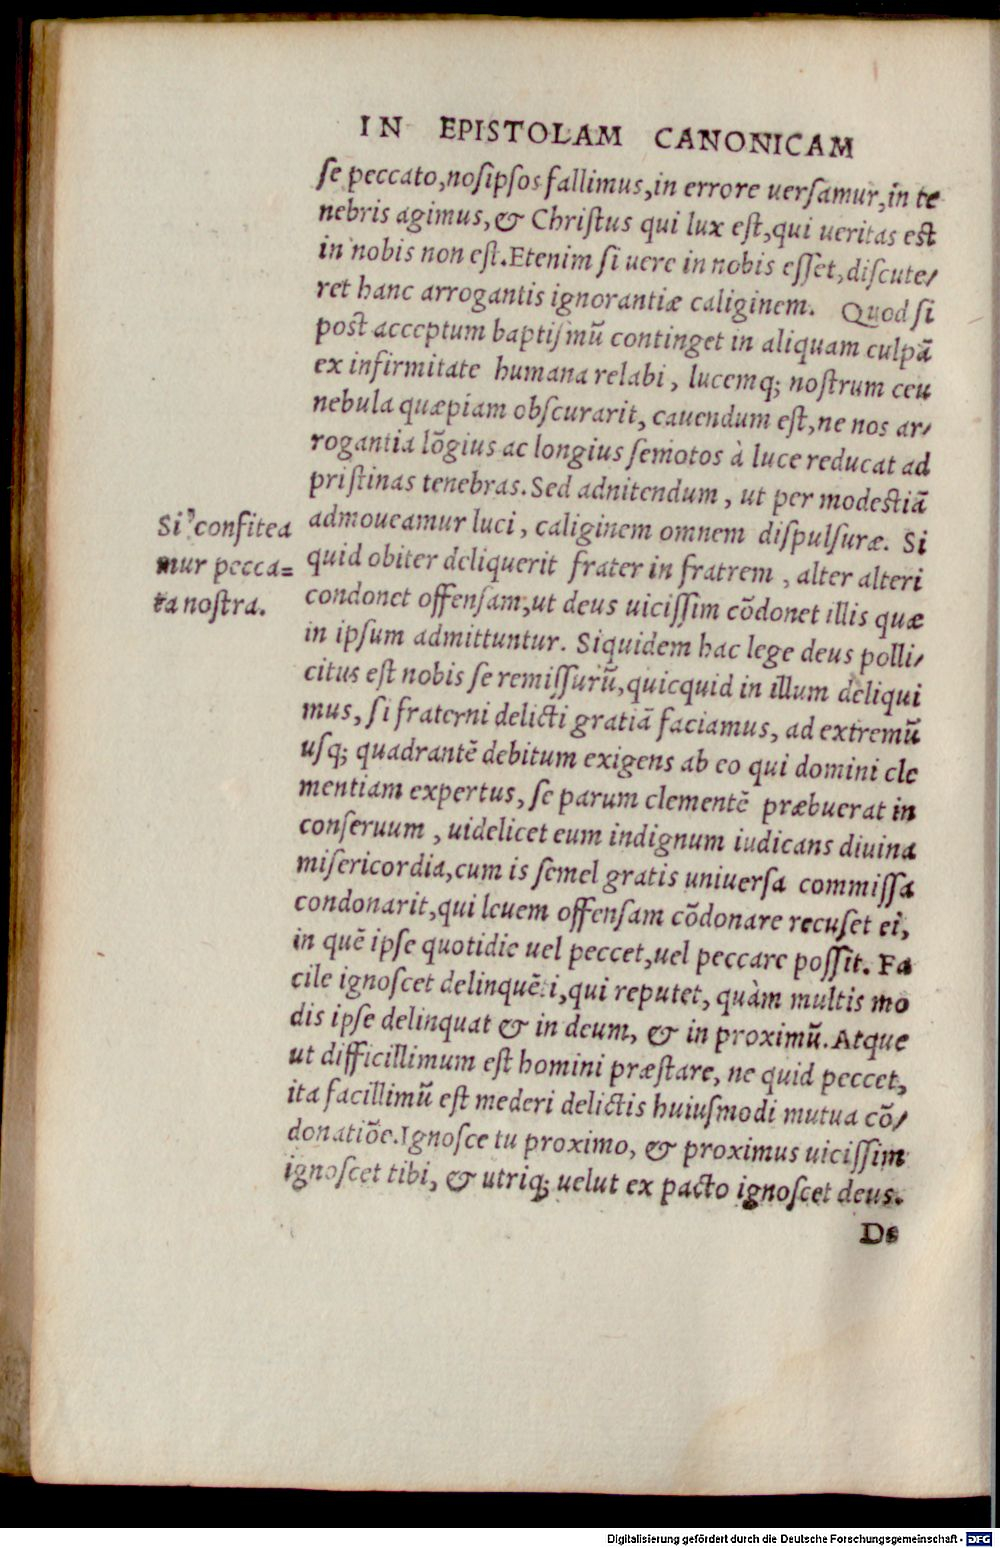 IN EPISTOLAM CANONICAM
ſe peccato,noſipſos fallimus,in errore uerſamur,in te
nebris agimus,& Chriſtus qui lux eſt,qui ueritas est
in nobis non eſt.Etenim ſi uere in nobis eſſet,diſcute/
ret hanc arrogantis ignorantiæ caliginem. Quod ſi
post acceptum baptiſmū continget in aliquam culpā
ex infirmitate humana relabi, lucemq; noſtrum ceu
nebula quæpiam obſcurarit, cauendum eſt,ne nos ar/
rogantia lōgius ac longius ſemotos à luce reducat ad
priſtinas tenebras.Sed adnitendum, ut per modestiā
admoueamur luci, caliginem omnem diſpulſuræ. Si
quid obiter deliquerit frater in fratrem, alter alteri
condonet offenſam,ut deus uiciſſim cōdonet illis quæ
in ipſum admittuntur. Siquidem hac lege deus polli/
citus eſt nobis ſe remiſſurū,quicquid in illum deliqui
mus, ſi fraterni delicti gratiā faciamus, ad extremū
uſq; quadrantē debitum exigens ab eo qui domini cle
mentiam expertus, ſe parum clementē præbuerat in
conſeruum, uidelicet eum indignum iudicans diuina
miſericordia,cum is ſemel gratis uniuerſa commiſſa
condonarit,qui leuem offenſam cōdonare recuſet ei,
in quē ipſe quotidie uel peccet,uel peccare poſſit. Fa
cile ignoſcet delinquēti,qui reputet, quàm multis mo
dis ipſe delinquat & in deum, & in proximū. Atque
ut difficillimum eſt homini præſtare, ne quid peccet,
ita facillimū eſt mederi delictis huiuſmodi mutua cō/
donatiōe.Ignoſce tu proximo, & proximus uiciſſim
ignoſcet tibi, & utriq; uelut ex pacto ignoſcet deus.
De
Si confitea
mur pecca=
ta noſtra.
Digitalisierung gefördert durch die Deutsche Forschungsgemeinschaft - DFG